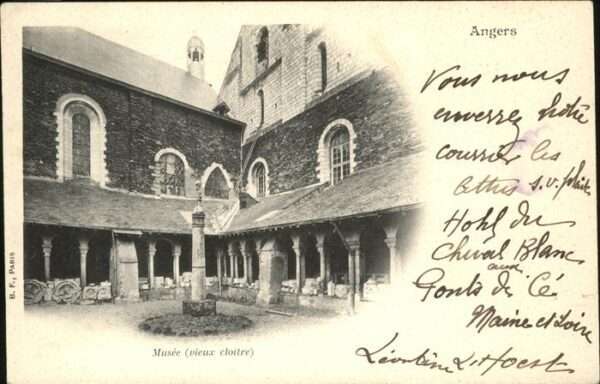 Angers
Vous nous
enverrez notre
courrier les
lettres s.v. plait
Hotel du
Cheval Blanc
aux
Ponts de Cé
Maine et Loire
Léontine L'Hoest
Musée (vieux cloître)
B. F., PARIS